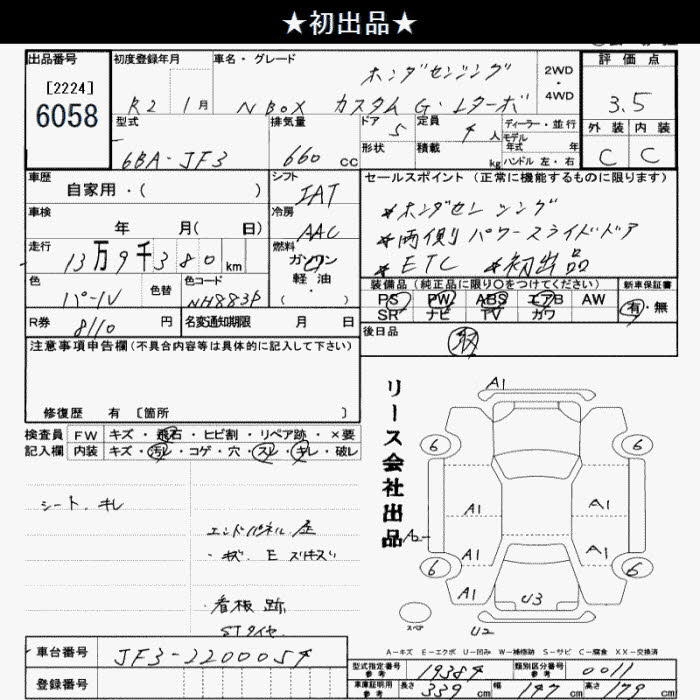 ★初出品★
出品番号
[2224]
6058
初度登録年月
R2 1月
車名・グレード
ホンダセンシング
N BOX カスタム G・Lターボ
2WD
・
4WD
評価点
3.5
外装 内装
C C
型式
6BA-JF3
排気量
660 cc
ドア
5
定員
4人
ディーラー・並行
モデル
年式 年
形状
積載
kg
ハンドル 左・右
車歴
自家用・( )
シフト
IAT
セールスポイント (正常に機能するものに限ります)
*ホンダセンシング
*両側パワースライドドア
*ETC *初出品
車検
年 月( 日)
冷房
AAC
走行
13万9千380km
燃料
ガソリン
軽油
・
( )
色
パール
色替
色コード
NH883P
装備品(純正品に限り○をつけてください)
PS PW ABS エアB AW
SR ナビ TV カワ
新車保証書
有・無
R券
8110円
名変通知期限
月 日
後日品
取
注意事項申告欄(不具合内容等は具体的に記入して下さい)
修復歴 有 [箇所 ]
検査員 FW キズ・飛石・ヒビ割・リペア跡・×要
記入欄 内装 キズ・汚レ・コゲ・穴・スレ・キレ・破レ
シート、キレ
エンドパネル
・キズ E
・看板跡
STタイヤ
リース会社出品
A1
6
6
A1
A1
A2
A1
A1
6
6
A1
U3
スペア
U2
A-キズ E-エクボ U-凹み W-補修跡 S-サビ C-腐食 XX-交換済
車台番号
JF3-2200054
登録番号
型式指定番号
参考
19384
類別区分番号
参考
0011
車庫証明用
参考
長さ 339cm
幅 147cm
高さ 179cm